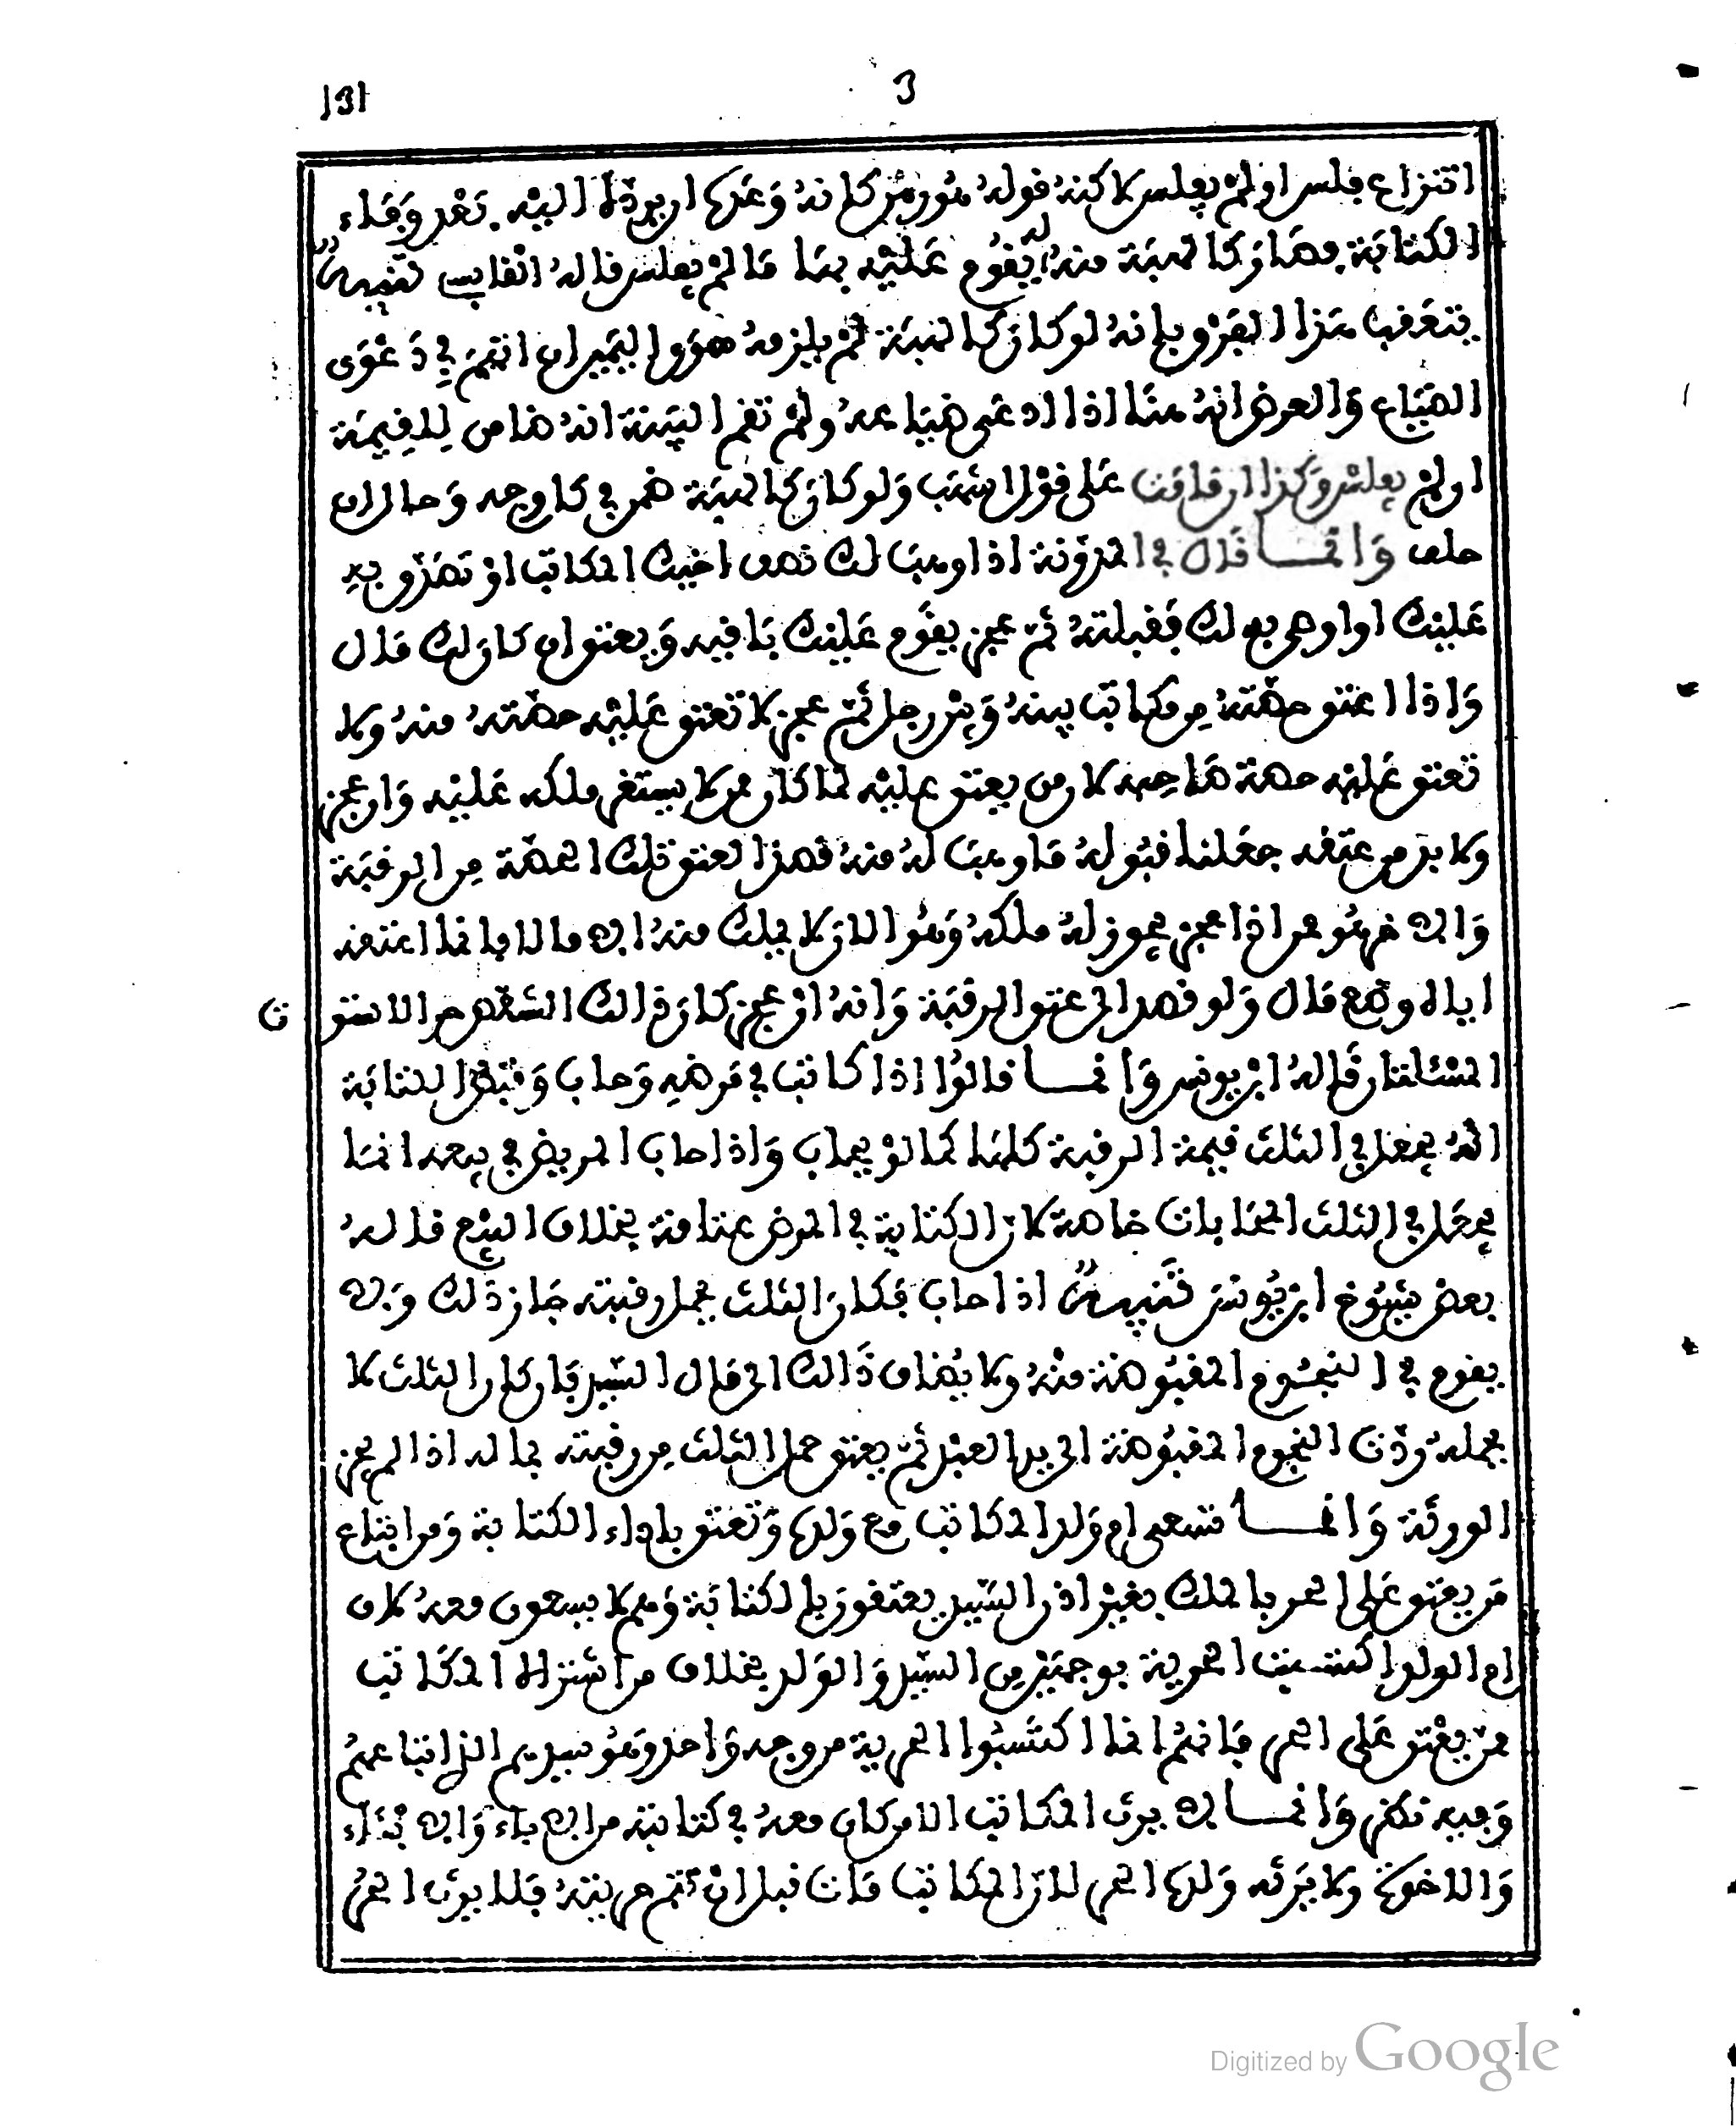 131 3
انتزاع فلس او لم يفلس لاكنه قوله هو رهن كانه وعدها ان يرده اليه بعد وفاء
الكتابة فصار كالهبة منه له يقوم عليه بها ما لم يفلس قاله القابسي تنبيه
يتعرف هذا الفرق بانه لو كان كالهبة لم يلزمه سوى اليمين ان اتهم في دعوى
الضياع والعرض انه هنا اذا ادعى ضياعه ولم تقم البينة انه ضامن للقيمة
او لم يفلس وكذا ان قامت على قول اشهب ولو كان كالهبة ضمن في كل وجه وحال ان
حلف وانما قال في المدونة اذا وهب لك نصف اخيك المكاتب او تصدق به
عليك او اوصى به لك فقبلته ثم عجز يقوم عليك باقيه ويعتق ان كان لك مال
واذا اعتق حصته من مكاتب بينه وبين رجل ثم عجز لا تعتق عليه حصته منه ولا
تعتق عليه حصة صاحبه لان من يعتق عليه لما كان ممن لا يستقر ملكه عليه وان عجز
ولا بد من عتقه جعلنا قبوله ما وهب له منه قصدا لعتق تلك الحصة من الرقبة
والاجنبي هو ممن اذا عجز يجوز له ملكه وهو الان لا يملك منه الا مالا فانما اعتقه
اياه وضع مال ولو قصد الى عتق الرقبة وانه ان عجز كان ذالك الشقص حرا لاستوت
المسئلتان قاله ابن يونس وانما قالوا اذا كاتب في مرضه وحابا وقبض الكتابة
انه يجعل في الثلث قيمة الرقبة كلها كما لو يحاب واذا حابا المريض في بيعه انما
يجعل في الثلث المحابات خاصة لان الكتابة في المرض عتاقة بخلاف البيع قاله
بعض شيوخ ابن يونس تنبيه اذا حابا فكان الثلث يحمل رقبته جاز ذلك ولا
يقوم في النجوم المقبوضة منه ولا يضاف ذالك الى مال السيد فان كان الثلث لا
يحمله ردت النجوم المقبوضة الى يد العبد ثم يعتق محمل الثلث من رقبته بماله اذا لم يجز
الورثة وانما تسعى ام ولد المكاتب مع ولدها وتعتق باداء الكتابة ومن ابتاع
من يعتق على الحر بالملك بغير اذن السيد يعتقون بالكتابة وهم لا يسعون معه لان
ام الولد اكتسبت الحرية بوجهين من السيد والولد بخلاف من اشتراه المكاتب
ممن يعتق على الحر فانهم انما اكتسبوا الحرية من وجه واحد وهو سيدهم الذي ابتاعهم
وفيه نظر وانما لا يرث المكاتب الا من كان معه في كتابته من الاباء والابناء
والاخوة ولا يرثه ولدها الحر لان المكاتب مات قبل ان تتم حريته فلا يرث الحر
Digitized by Google